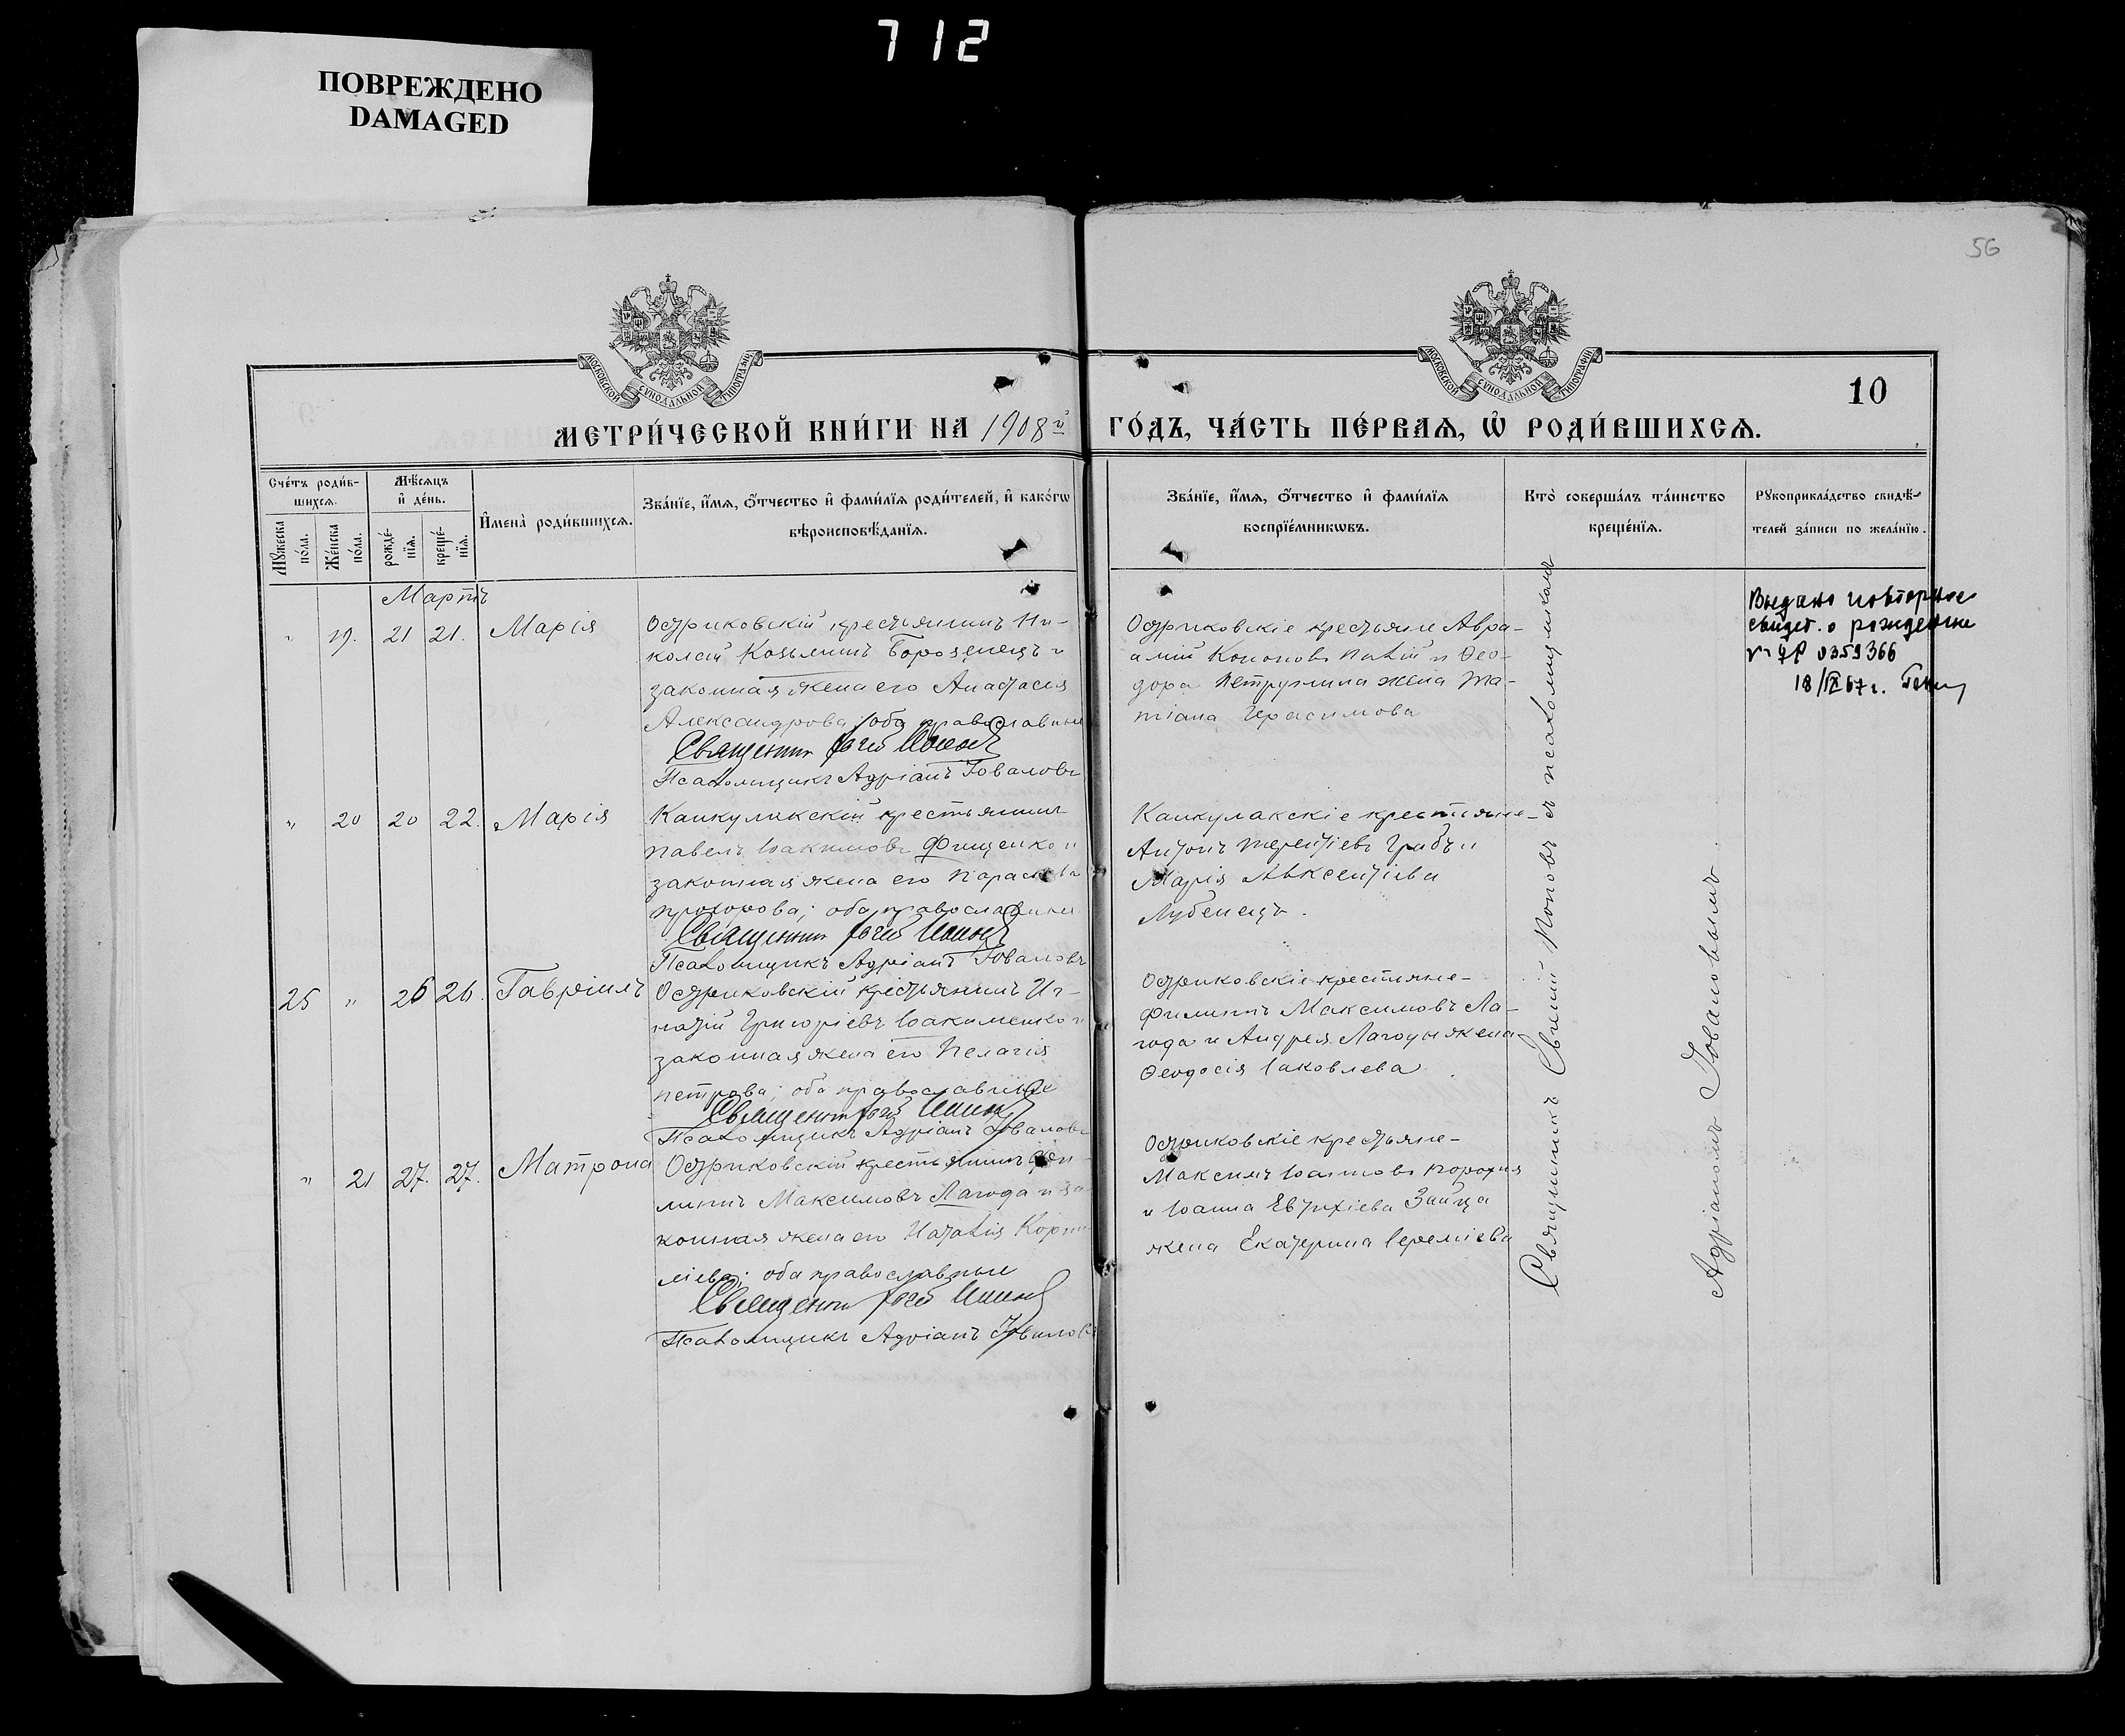 712
ПОВРЕЖДЕНО
DAMAGED
56
МОСКОВСКОЙ СУНОДАЛЬНОЙ ТИПОГРАФІИ
МОСКОВСКОЙ СУНОДАЛЬНОЙ ТИПОГРАФІИ
10
МЕТРИ́ЧЕСКОЙ КНИ́ГИ НА 1908й ГО́ДЪ, ЧА́СТЬ ПЕ́РВАѦ, Ѡ҆ РОДИ́ВШИХСѦ.
Сче́тъ роди́в-
шихсѧ.
Мꙋ́жеска по́ла.
Же́нска по́ла.
Мѣ́сѧцъ
и҆ де́нь.
рожде́-
нїѧ.
креще́-
нїѧ.
И҆мена̀ роди́вшихсѧ.
Зва́нїе, и҆́мѧ, ѻ҆́тчество и҆ фами́лїѧ роди́телей, и҆ како́гѡ
вѣроисповѣ́данїѧ.
Зва́нїе, и҆́мѧ, ѻ҆́тчество и҆ фами́лїѧ
воспрїе́мникѡвъ.
Кто̀ соверша́лъ та́инство
креще́нїѧ.
Рꙋкоприкла́дство свидѣ́-
телей за́писи по жела́нїю.
Мартъ
" 19. 21 21. Марія
Остриковскій крестьянинъ Ни-
колай Козьминъ Борозенецъ и
законная жена его Анастасія
Александрова; оба православные
Священникъ Попов
Псаломщикъ Адріанъ Іовановъ
Остриковскіе крестьяне Авра-
амій Кононовъ Палій и Ѳео-
дора Петрухина жена Та-
тіана Герасимова
Выдано повторное
свидет. о рождении
0359366
18/IX 67 г.
" 20 20 22. Марія
Канкулакскій крестьянинъ
Павелъ Іоакимовъ Фищенко и
законная жена его Параскева
Прохорова; оба православные
Священникъ Попов
Псаломщикъ Адріанъ Іовановъ
Канкулакскіе крестьяне-
Антонъ Терентіевъ Грибъ и
Марія Авксентіева
Лубенецъ.
25 " 26 26. Гавріилъ
Остриковскій крестьянинъ Иг-
натій Григоріевъ Іоакименко и
законная жена его Пелагія
Петрова; оба православные
Священникъ Попов
Псаломщикъ Адріанъ Іовановъ
Остриковскіе крестьяне-
Филиппъ Максимовъ Ла-
года и Андрея Лагоды жена
Ѳеодосія Іаковлева
" 21 27. 27. Матрона
Остриковскій крестьянинъ Фи-
липпъ Максимовъ Лагода и за-
конная жена его Наталія Корни-
ліева; оба православные
Священникъ Попов
Псаломщикъ Адріанъ Іовановъ
Остриковскіе крестьяне-
Максимъ Іоанновъ
и Іоанна Евтихіева Зайца
жена Екатерина Іереміева
Священникъ Попов съ псаломщикомъ
Адріаномъ Іовановымъ.